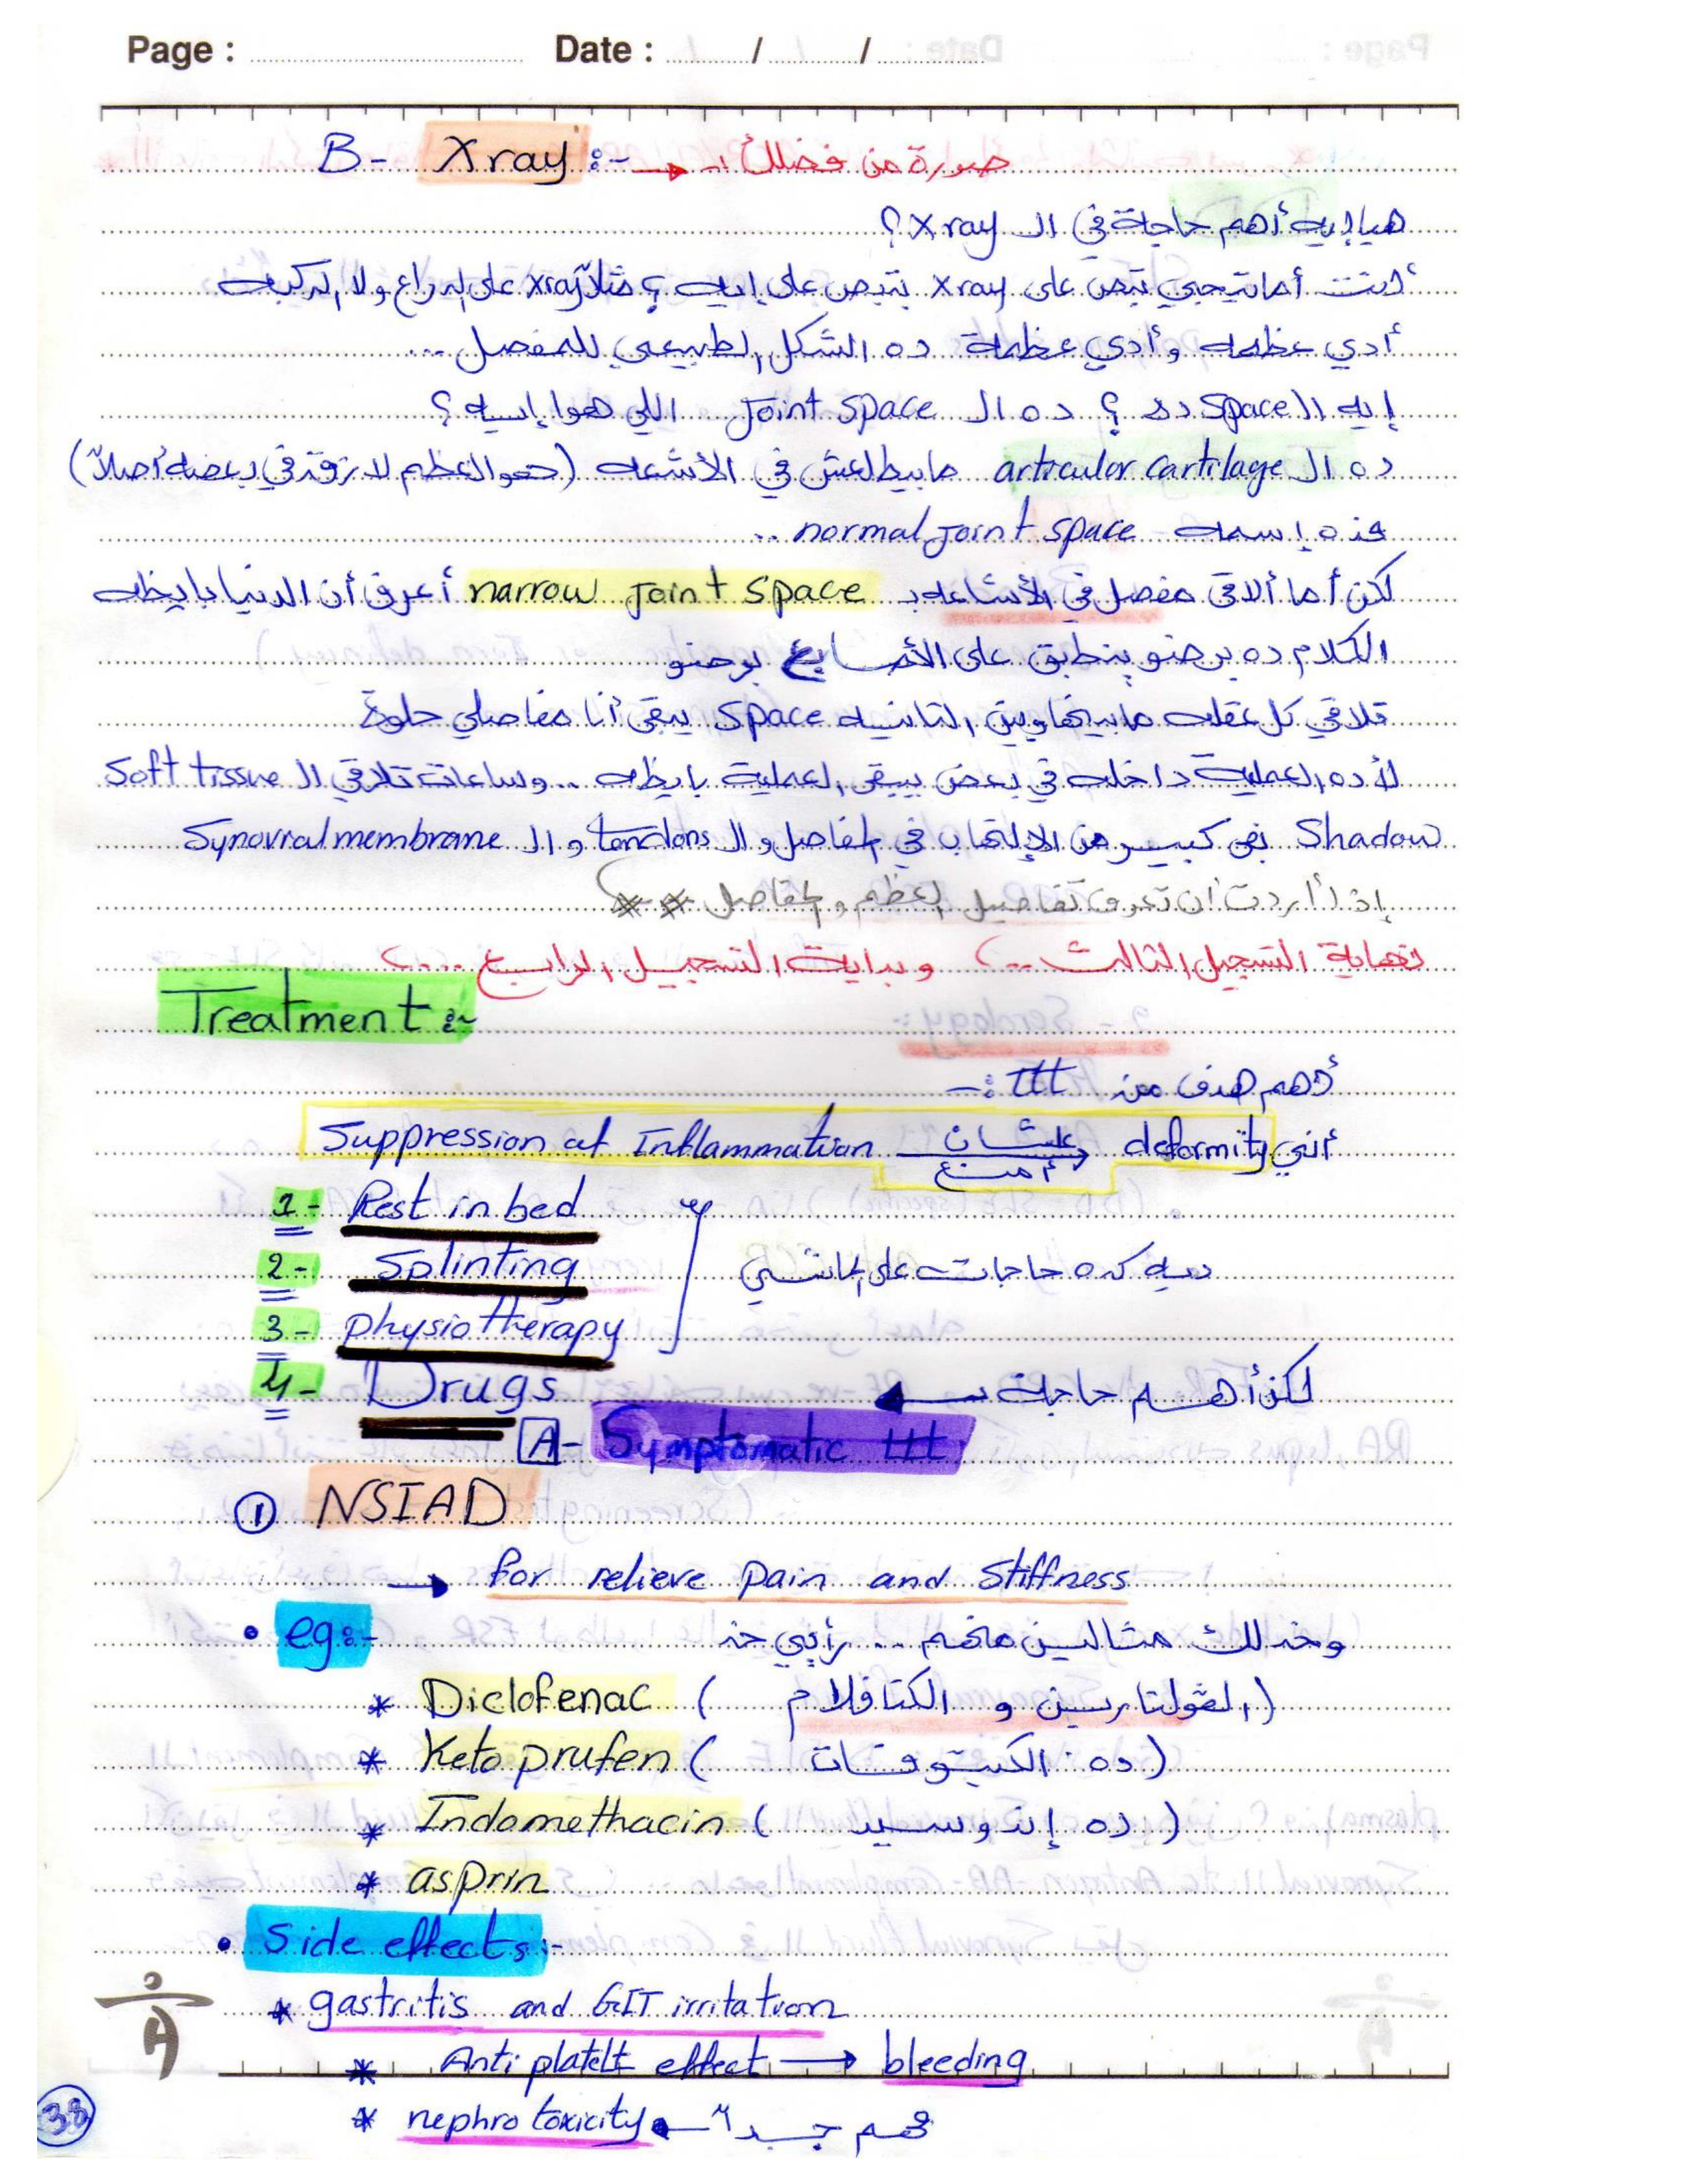 Page : Date : / /
B- X ray :- → صورة من فضلك :-
هيا إيه أهم حاجة في ال X ray ؟
أنت أما تيجي تبص على X ray بتبص على إيه ؟ مثلاً X ray على الدراع ولا الركبه
أدي عظمه وأدي عظمة ده الشكل الطبيعي للمفصل ...
إيه ال Space ده ؟ ده ال Joint space اللي هوا إيه ؟
ده ال articular cartilage مابيطلعش في الأشعه (هو العظم لازق في بعضه أصلاً)
فده إسمه normal joint space ..
لكن أما ألاقي مفصل في الأشاعه بـ narrow joint space أعرف أن الدنيا بايظه
الكلام ده برضو ينطبق على الأصابع برضو
تلاقي كل عقله مابينها وبين التانيه space يبقى أنا مفاصلي حلوة
لأ ده العملية داخله في بعض يبقى العملية بايظه .. وساعات تلاقي ال Soft tissue
Shadow بقى كبير من الإلتهاب في المفاصل و ال tendons و ال Synovial membrane
إذا أردت أن تعرف تفاصيل العظم والمفاصل **
نهاية التسجيل الثالث ... وبداية التسجيل الرابع ....
Treatment :-
أهم هدف من ttt :-
Suppression at Inflammation علشان أمنع deformity أنني
1- Rest in bed
2- Splinting ديه كده حاجات على الماشي
3- physiotherapy
4- Drugs لكن أهم حاجة
A- Symptomatic ttt
① NSIAD
→ for relieve pain and stiffness
• eg:- وخد لك مثالين منهم .. رأيي خد
* Diclofenac ( الفولتارين و الكتافلام )
* Keto prufen ( ده الكيتوفان )
* Indomethacin ( ده إندوسيد )
* asprin
• Side effects :-
* gastritis and GIT irritation
* Anti platelt effect → bleeding
* nephro toxicity ← مهم جداً
38